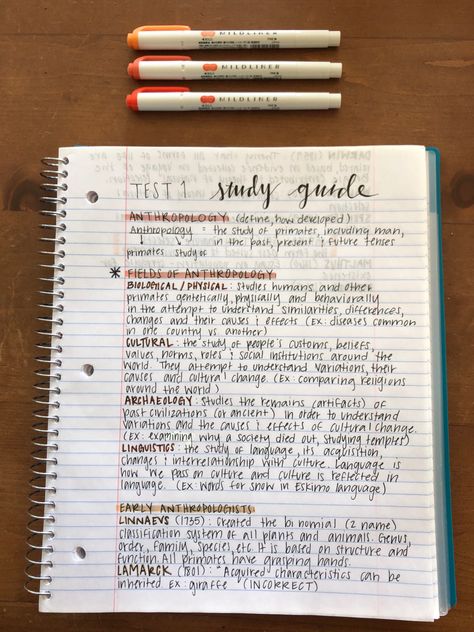 MILDLINER
MILDLINER
MILDLINER
TEST 1 study guide
ANTHROPOLOGY (define, how developed)
Anthropology = the study of primates, including man,
in the past, present & future tenses
primates study of
* FIELDS OF ANTHROPOLOGY
BIOLOGICAL / PHYSICAL: studies humans and other
primates genetically, physically and behaviorally
in the attempt to understand similarities, differences,
changes and their causes & effects (EX: diseases common
in one country vs. another)
CULTURAL: the study of people's customs, beliefs,
values, norms, roles & social institutions around the
world. They attempt to understand variations, their
causes and cultural change. (EX: comparing religions
around the world)
ARCHAEOLOGY: studies the remains (artifacts) of
past civilizations (or ancient) in order to understand
variations and the causes & effects of cultural change.
(EX: examining why a society died out, studying temples)
LINGUISTICS: the study of language, its acquisition,
changes & interrelationship with culture. Language is
how we pass on culture and culture is reflected in
language. (EX: words for snow in Eskimo language)
EARLY ANTHROPOLOGISTS
LINNAEUS (1735): created the binomial (2 name)
classification system of all plants and animals. Genus,
order, family, species, etc. It is based on structure and
function. All primates have grasping hands.
LAMARCK (1801): "Acquired characteristics can be
inherited EX: giraffe" (INCORRECT)